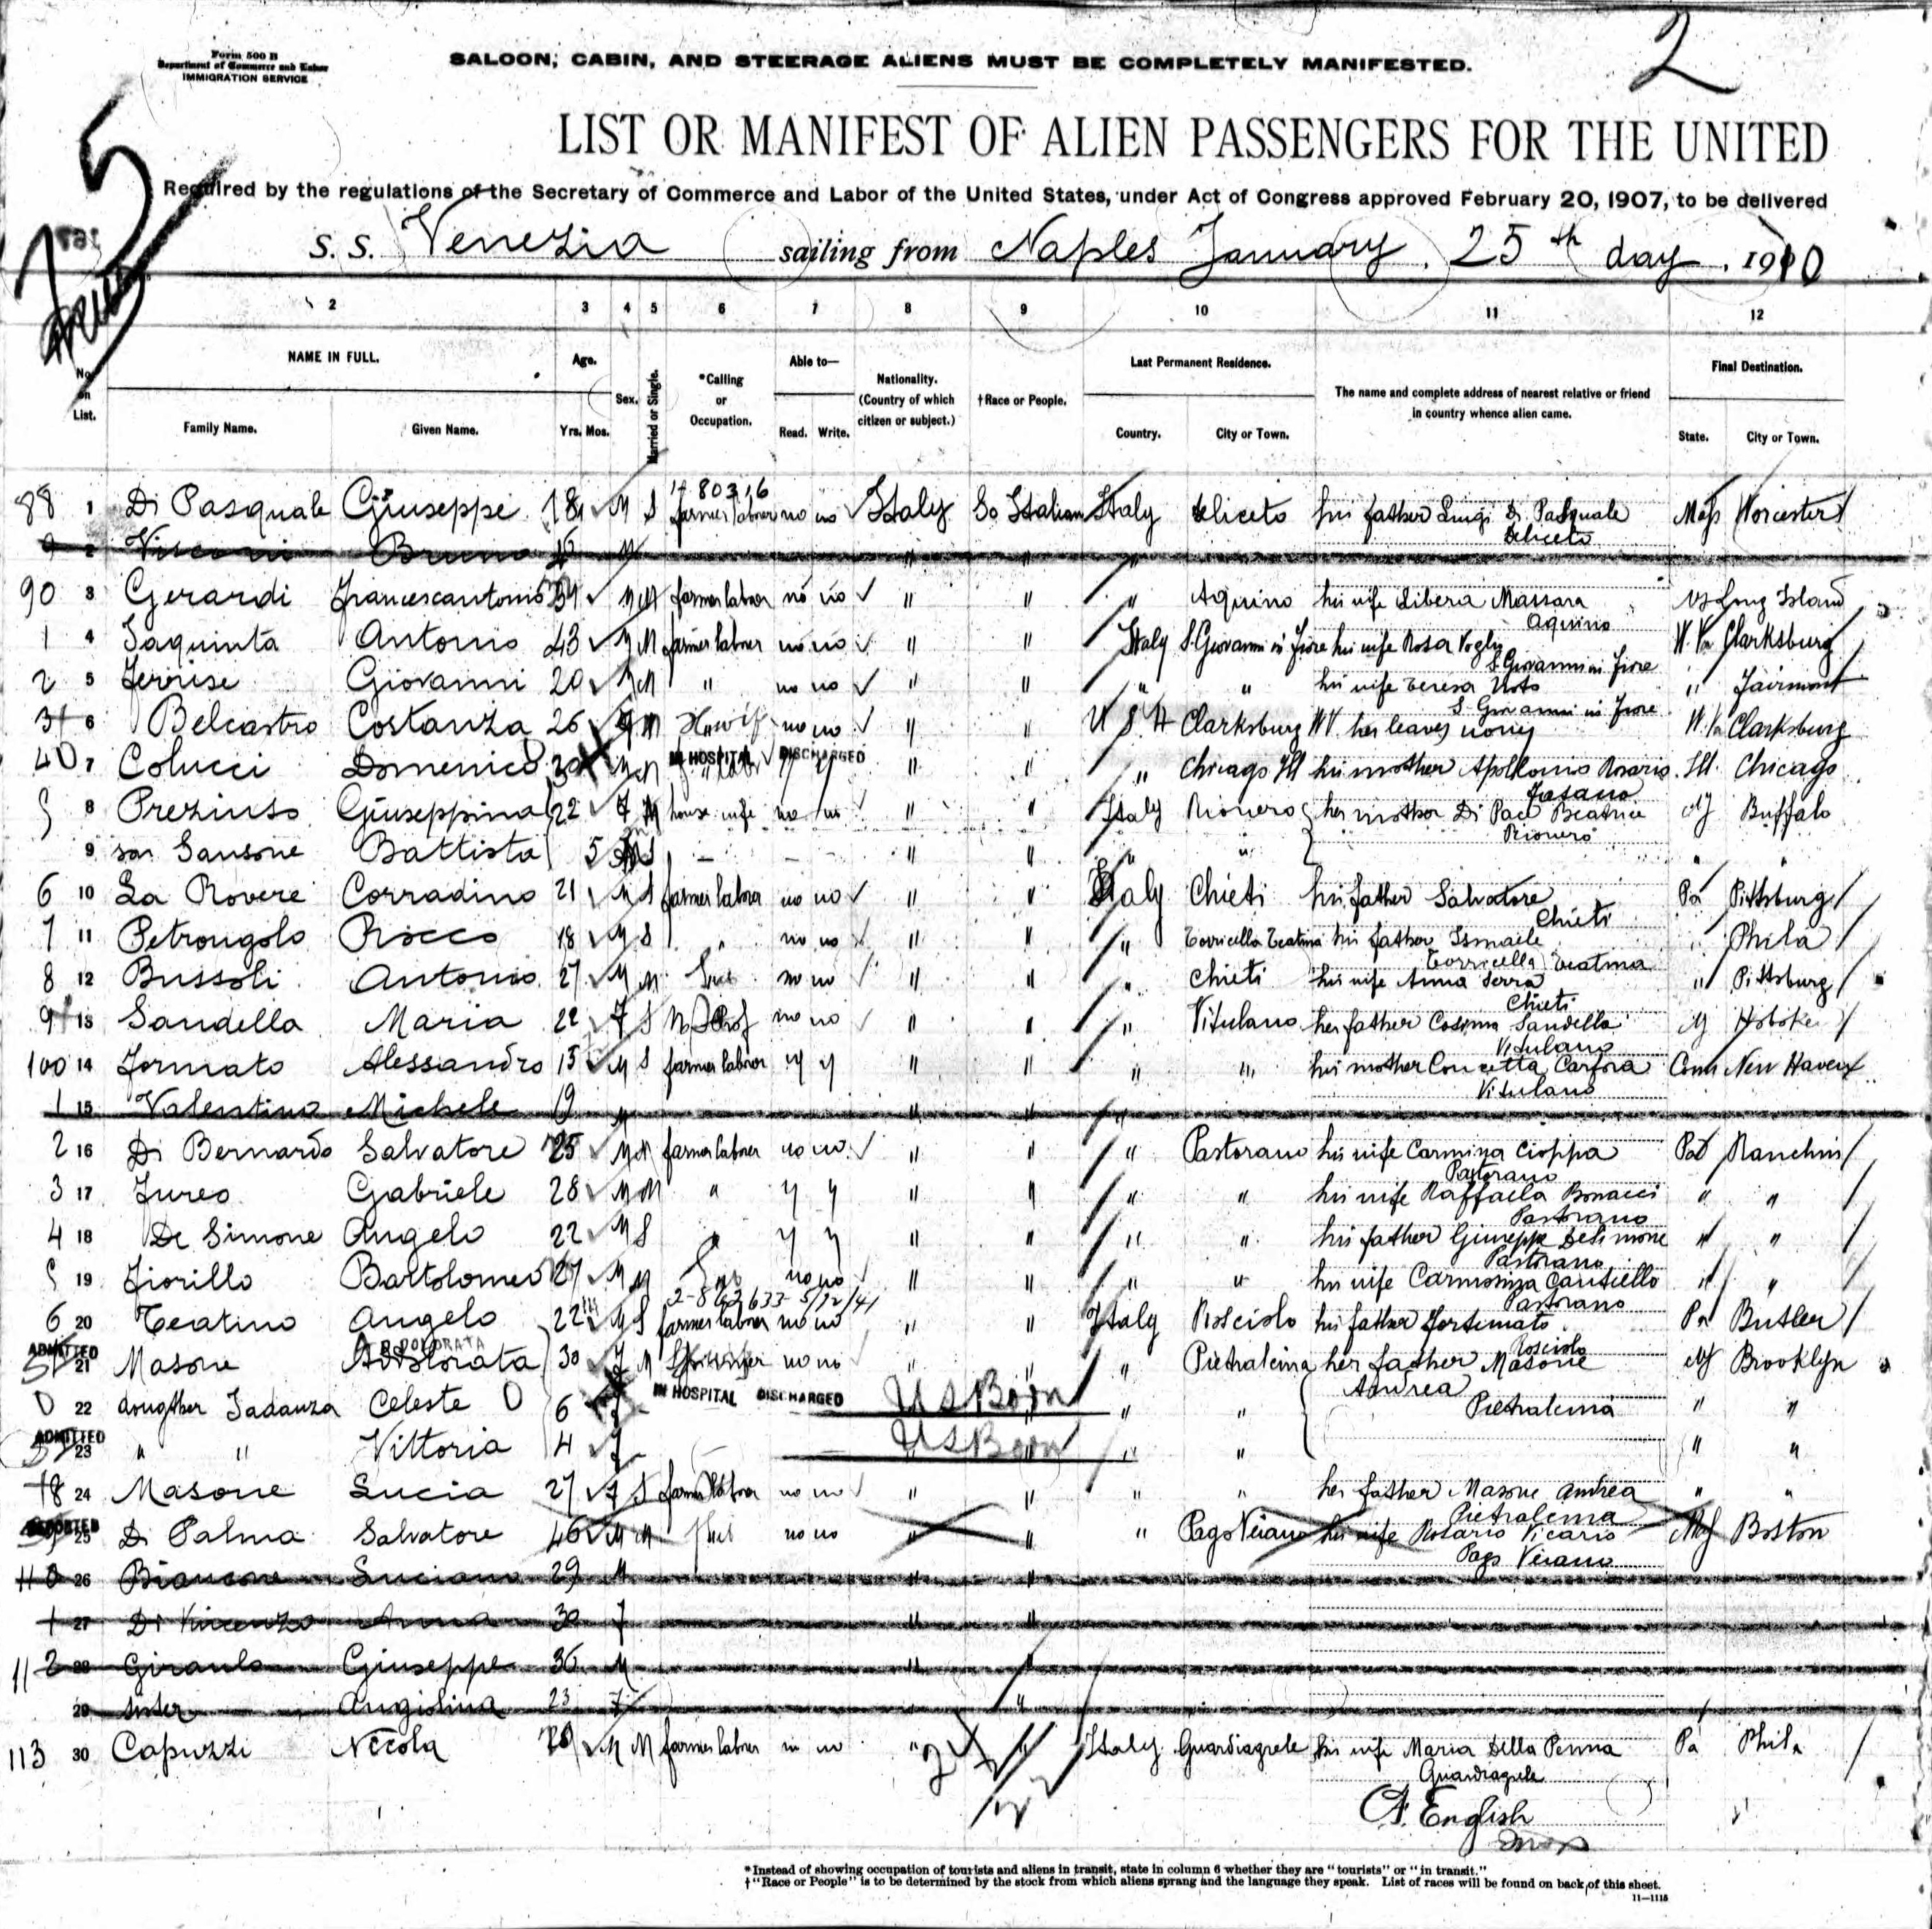 2
Form 500 B
Department of Commerce and Labor
IMMIGRATION SERVICE
SALOON, CABIN, AND STEERAGE ALIENS MUST BE COMPLETELY MANIFESTED.
5
LIST OR MANIFEST OF ALIEN PASSENGERS FOR THE UNITED
Required by the regulations of the Secretary of Commerce and Labor of the United States, under Act of Congress approved February 20, 1907, to be delivered
S. S. Venezia sailing from Naples January, 25th day, 1910
2 3 4 5 6 7 8 9 10 11 12
No. on List.
NAME IN FULL.
Family Name. Given Name.
Age.
Yrs. Mos.
Sex.
Married or Single.
*Calling or Occupation.
Able to—
Read. Write.
Nationality. (Country of which citizen or subject.)
†Race or People.
Last Permanent Residence.
Country. City or Town.
The name and complete address of nearest relative or friend in country whence alien came.
Final Destination.
State. City or Town.
14 80316
88 1 Di Pasquale Giuseppe 18 M S farmer laborer no no Italy So Italian Italy Deliceto his father Luigi Di Pasquale Mass Worcester
Deliceto
2 Bruno M "
90 3 Gerardi Francescantonio 39 M M farmer laborer no no " " " Aquino his wife Libera Massara NY Long Island
Aquino
1 4 Iaquinta Antonio 43 M M farmer laborer no no " " Italy S. Giovanni in Fiore his wife Rosa W. Va Clarksburg
S. Giovanni in Fiore
2 5 Giovanni 20 M M " no no " " " " his wife Teresa " Fairmont
S. Giovanni in Fiore
6 Belcastro Costanza 26 M no no " U S A Clarksburg WV her leaves W. Va Clarksburg
IN HOSPITAL DISCHARGED
7 Colucci Domenico 30 M M " " " Chicago Ill his mother Apollonio Rosario Ill. Chicago
Fasano
8 Preziuso Giuseppina 22 F M house wife no no " " Italy Rionero her mother Di Pace Beatrice NY Buffalo
Rionero
9 son Sansone Battista 5 S – – – " " " " " "
6 10 La Rovere Corradino 21 M S farmer laborer no no " " Italy Chieti his father Salvatore Pa Pittsburg
Chieti
7 11 Petrongolo Rocco 18 M S " no no " " " Torricella Teatina his father Ismaele " Phila
Torricella Teatina
8 12 Bussoli Antonio 27 M M no no " " " Chieti his wife Anna Serra " Pittsburg
Chieti
9 13 Sandella Maria 22 F S no no " " " Vitulano her father Cosimo Sandella Hoboken
Vitulano
100 14 Formato Alessandro 15 M S farmer laborer y y " " " " his mother Concetta Carfora Conn New Haven
Vitulano
1 15 Valentino Michele 19 M " " "
2 16 Di Bernardo Salvatore 25 M M farmer laborer no no " " " Pastorano his wife Carmina Cioppa Pa
Pastorano
3 17 Gabriele 28 M M " y y " " " " his wife Raffaela Bonacci " "
Pastorano
4 18 De Simone Angelo 22 M S " y y " " " " his father Giuseppe DeSimone " "
Pastorano
19 Fiorillo Bartolomeo 27 M M no no " " " " his wife Carmosina " "
Pastorano
2-862633-5/12/41
6 20 Teatino Angelo 22 M S farmer laborer no no " " Italy Rosciolo his father Fortunato Pa Butler
Rosciolo
ADMITTED
ADDOLORATA
21 Masone Addolorata 30 F M no no " " " Pietralcina her father Masone NY Brooklyn
Andrea
IN HOSPITAL DISCHARGED
22 daugther Iadanza Celeste 6 f US Born " " Pietralcina " "
ADMITTED
23 " " Vittoria 4 f US Born " " " "
24 Masone Lucia 27 F S farmer laborer no no " " " " her father Masone Andrea " "
Pietralcina
25 Di Palma Salvatore 46 M M no no " " " Pago Veiano his wife Rosario Vicario Mass Boston
Pago Veiano
26 Luciano 29 M " "
1 27 Di Vincenzo Anna 30 F " "
11 2 28 Giuseppe 36 M " "
29 sister Angiolina 23 F "
113 30 Capuzzi Nicola M M farmer laborer no no " Italy Guardiagrele his wife Maria Della Penna Pa Phila
Guardiagrele
English
*Instead of showing occupation of tourists and aliens in transit, state in column 6 whether they are "tourists" or "in transit."
†"Race or People" is to be determined by the stock from which aliens sprang and the language they speak. List of races will be found on back of this sheet.
11—1115